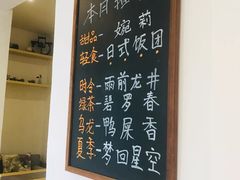 本月推
甜品— 婉莉
轻食—日式饭团
时令—雨前龙井
绿茶—碧罗春
乌龙—鸭屎香
夏季—梦回星空